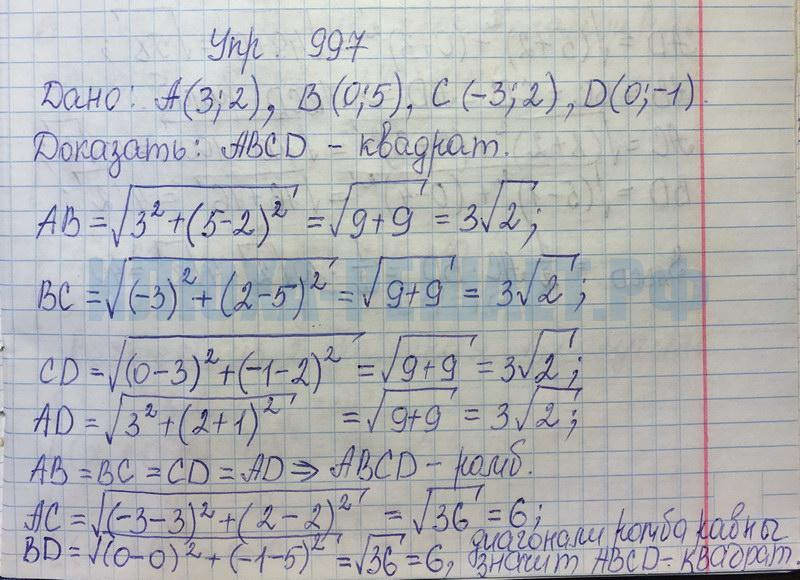 Упр. 997
Дано: A(3;2), B(0;5), C(-3;2), D(0;-1).
Доказать: ABCD - квадрат.
AB = √(3² + (5-2)²) = √(9+9) = 3√2;
BC = √((-3)² + (2-5)²) = √(9+9) = 3√2;
CD = √((0-3)² + (-1-2)²) = √(9+9) = 3√2;
AD = √(3² + (2+1)²) = √(9+9) = 3√2;
AB = BC = CD = AD ⇒ ABCD - ромб.
AC = √((-3-3)² + (2-2)²) = √36 = 6;
BD = √((0-0)² + (-1-5)²) = √36 = 6, диагонали ромба равны
значит ABCD - квадрат